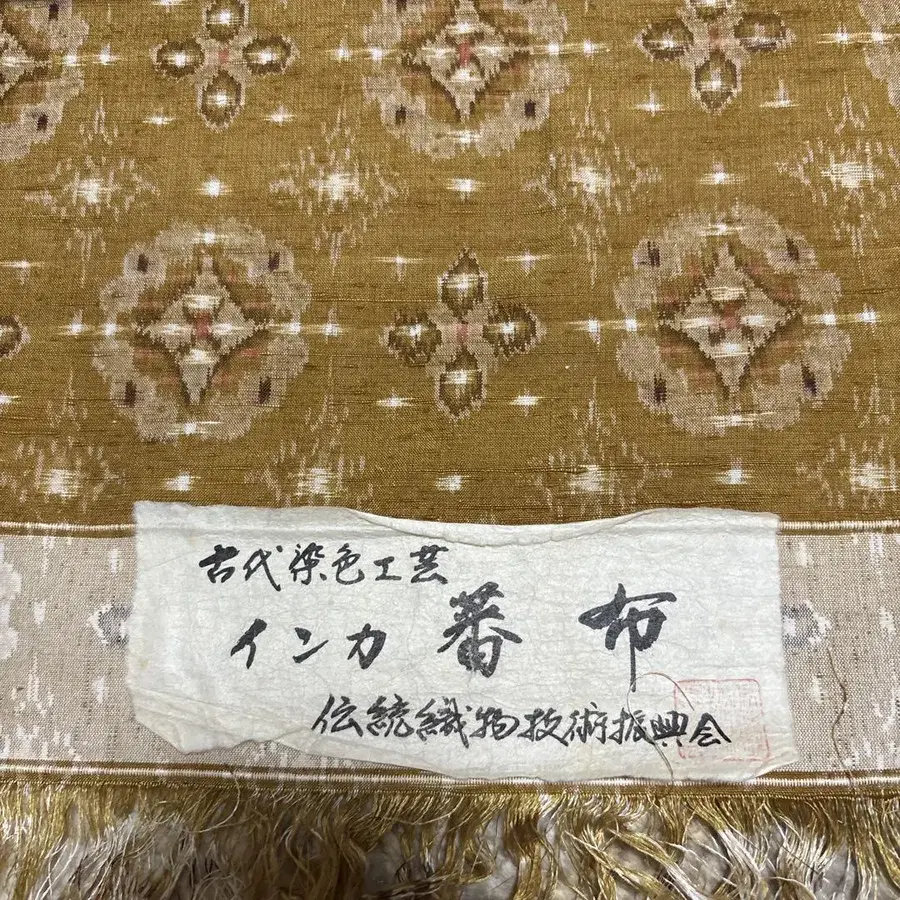 古代染色工芸
インカ蕃布
伝統織物技術振興会